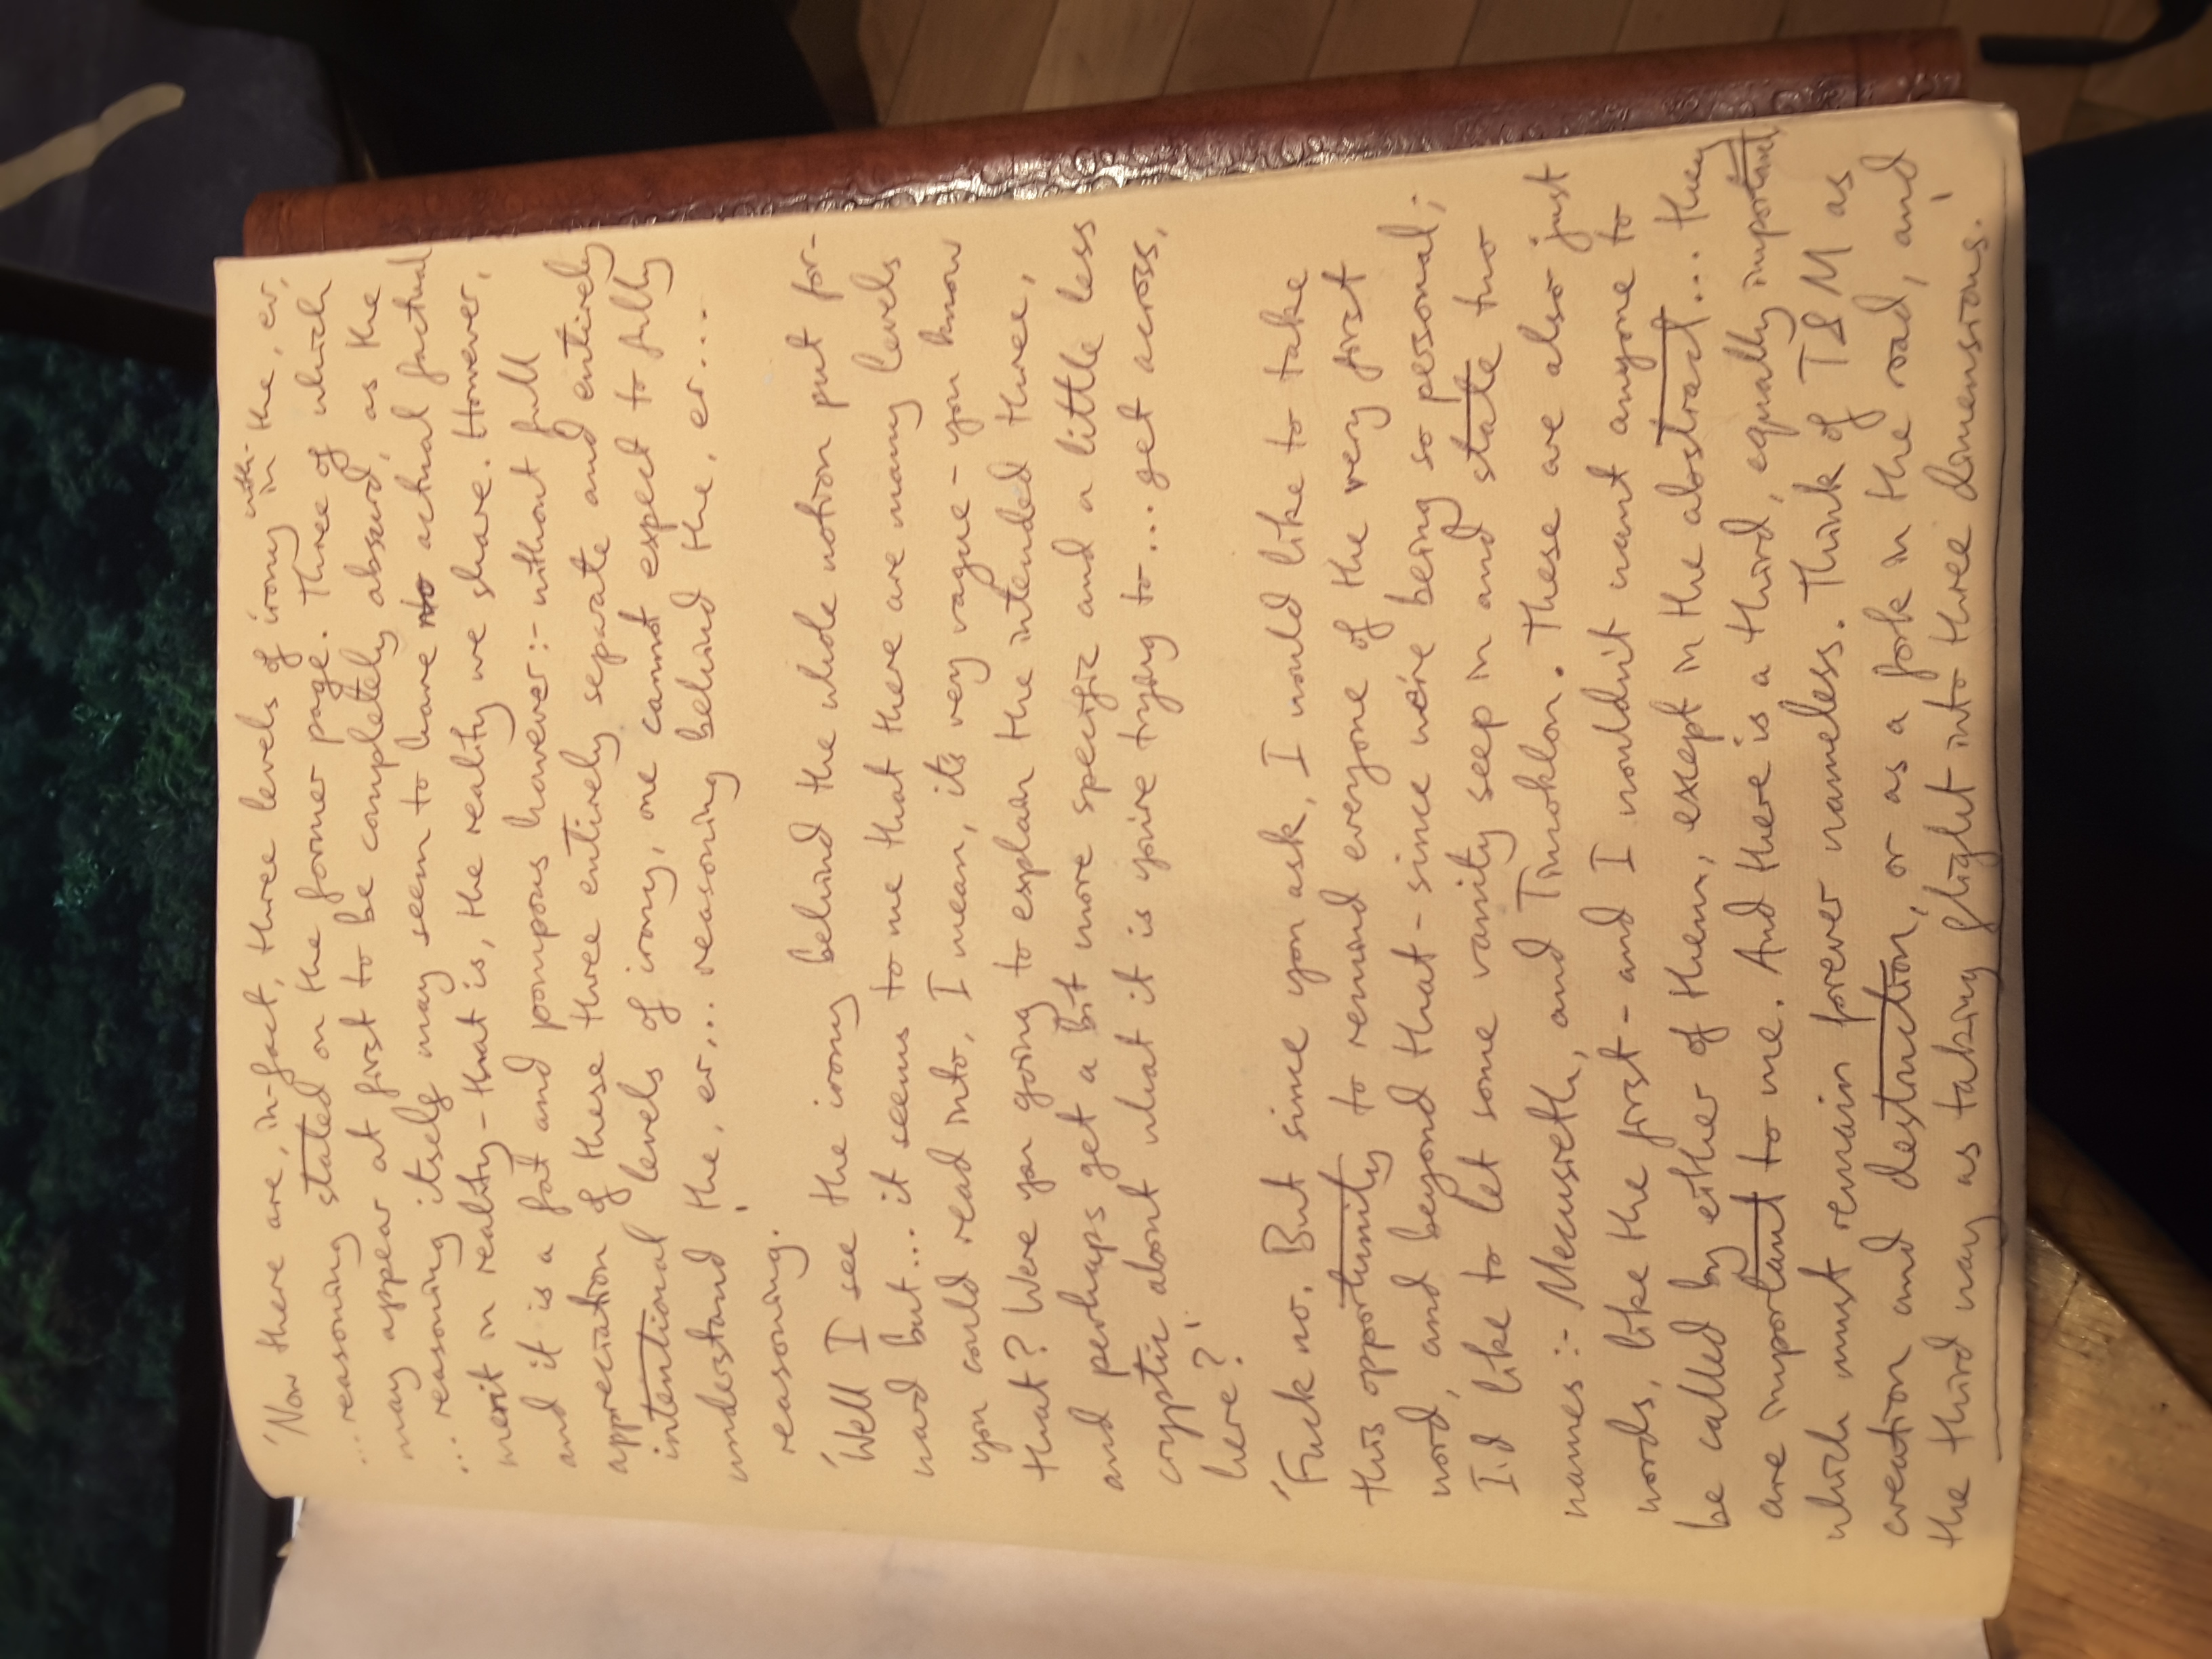 'Now there are, in-fact, three levels of irony with-in the, er,
...reasoning stated on the former page. Three of which
may appear at first to be completely absurd, as the
...reasoning itself may seem to have no actual factual
merit in reality - that is, the reality we share. However,
and it is a fat and pompous however:- without full
appreciation of these three entirely separate and entirely
intentional levels of irony, one cannot expect to fully
understand the, er... reasoning behind the, er...
reasoning.'
'Well I see the irony behind the whole notion put for-
ward but... it seems to me that there are many levels
you could read into, I mean, it's very vague - you know
that? Were you going to explain the intended three,
and perhaps get a bit more specific and a little less
cryptic about what it is you're trying to... get across,
here?'
'Fuck no. But since you ask, I would like to take
this opportunity to remind everyone of the very first
word, and beyond that - since we're being so personal;
I'd like to let some vanity seep in and state two
names :- Mecusieth, and Timoklon. These are also just
words, like the first - and I wouldn't want anyone to
be called by either of them, except in the abstract... they
are important to me. And there is a third, equally important
which must remain forever nameless. Think of T & M as
creation and destruction, or as a fork in the road, and
the third way as taking flight into three dimensions.'